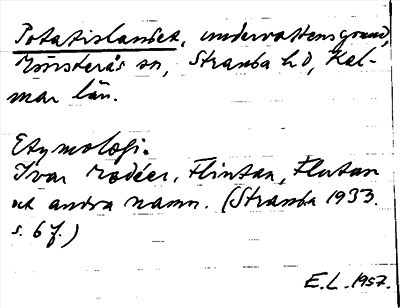 Potatislandet, undervattensgrund,
Mönsterås sn, Stranda hd, Kal-
mar län.
Etymologi.
Ivar Modéer, Flintan, Flutan
och andra namn. (Stranda 1933.
s. 6 f.)
E.L. 1957.